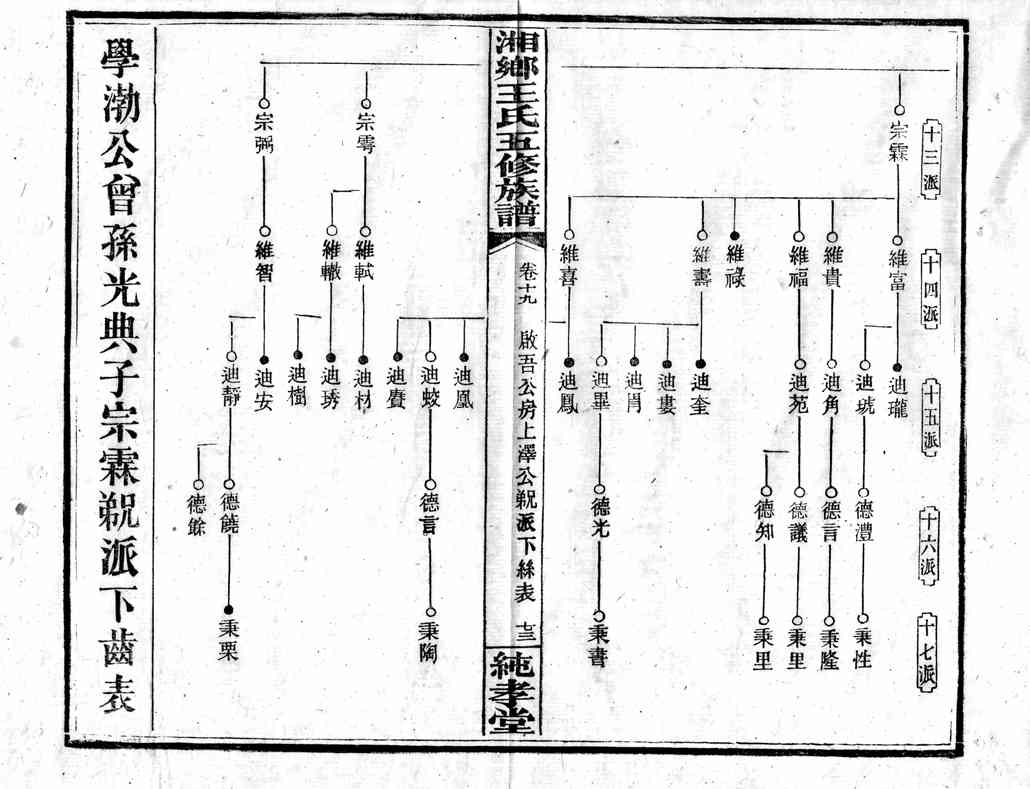 十三派
十四派
十五派
十六派
十七派
宗霖
維富
維貴
維福
維祿
維壽
維喜
迪瓏
迪琥
迪角
迪苑
迪奎
迪婁
迪胃
迪畢
迪鳳
德澧
德言
德議
德知
德光
秉性
秉隆
秉里
秉里
秉書
湘鄉王氏五修族譜
卷十九
啟吾公房上澤公覑派下絲表
七三
純孝堂
宗雩
宗弼
維軾
維轍
維智
迪凰
迪蛟
迪賡
迪材
迪琇
迪樹
迪安
迪靜
德言
德饒
德餘
秉陶
秉栗
學渤公曾孫光典子宗霖覑派下齒表